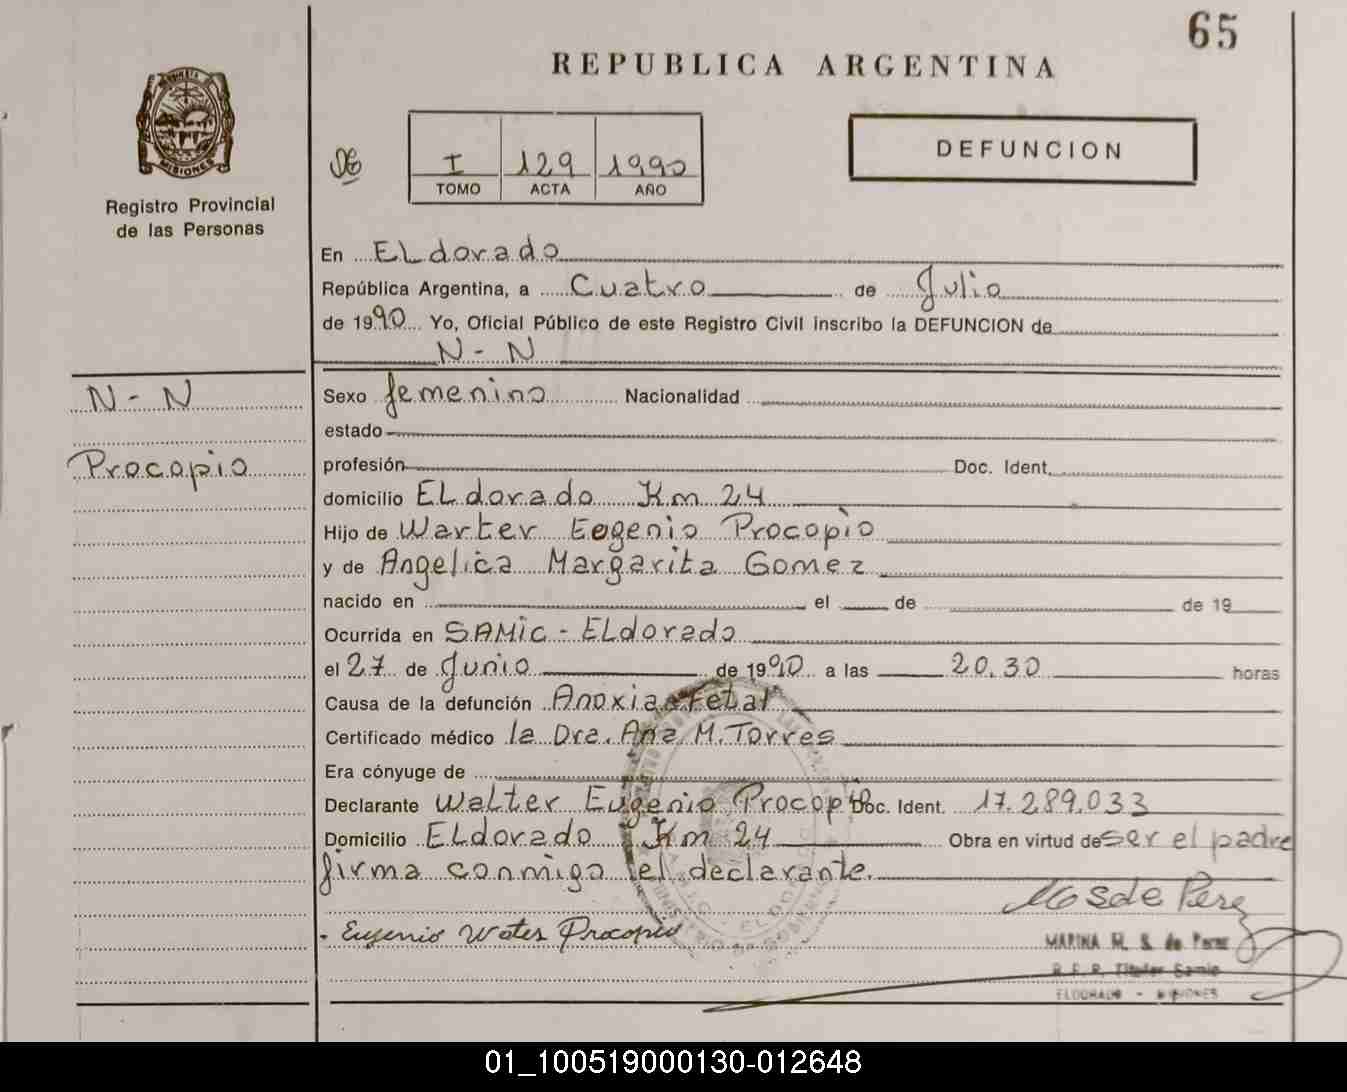 65
REPUBLICA ARGENTINA
MISIONES
Registro Provincial
de las Personas
I 129 1990
TOMO ACTA AÑO
DEFUNCION
En ELdorado
República Argentina, a Cuatro de Julio
de 1990 Yo, Oficial Público de este Registro Civil inscribo la DEFUNCION de
N - N
N - N
Procopio
Sexo femenino Nacionalidad
estado
profesión Doc. Ident.
domicilio ELdorado Km 24
Hijo de Warter Eogenio Procopio
y de Angelica Margarita Gomez
nacido en el de de 19
Ocurrida en SAMIC - ELdorado
el 27 de Junio de 1990 a las 20.30 horas
Causa de la defunción Anoxia Fetal
Certificado médico la Dra. Ana M. Torres
Era cónyuge de
Declarante Walter Eugenio Procopio Doc. Ident. 17.289.033
Domicilio ELdorado Km 24 Obra en virtud de ser el padre
firma conmigo el declarante.
Eugenio Water Procopio
MARINA M. S. de Perez
R. E. P. Titular Samic
ELDORADO - MISIONES
01_100519000130-012648